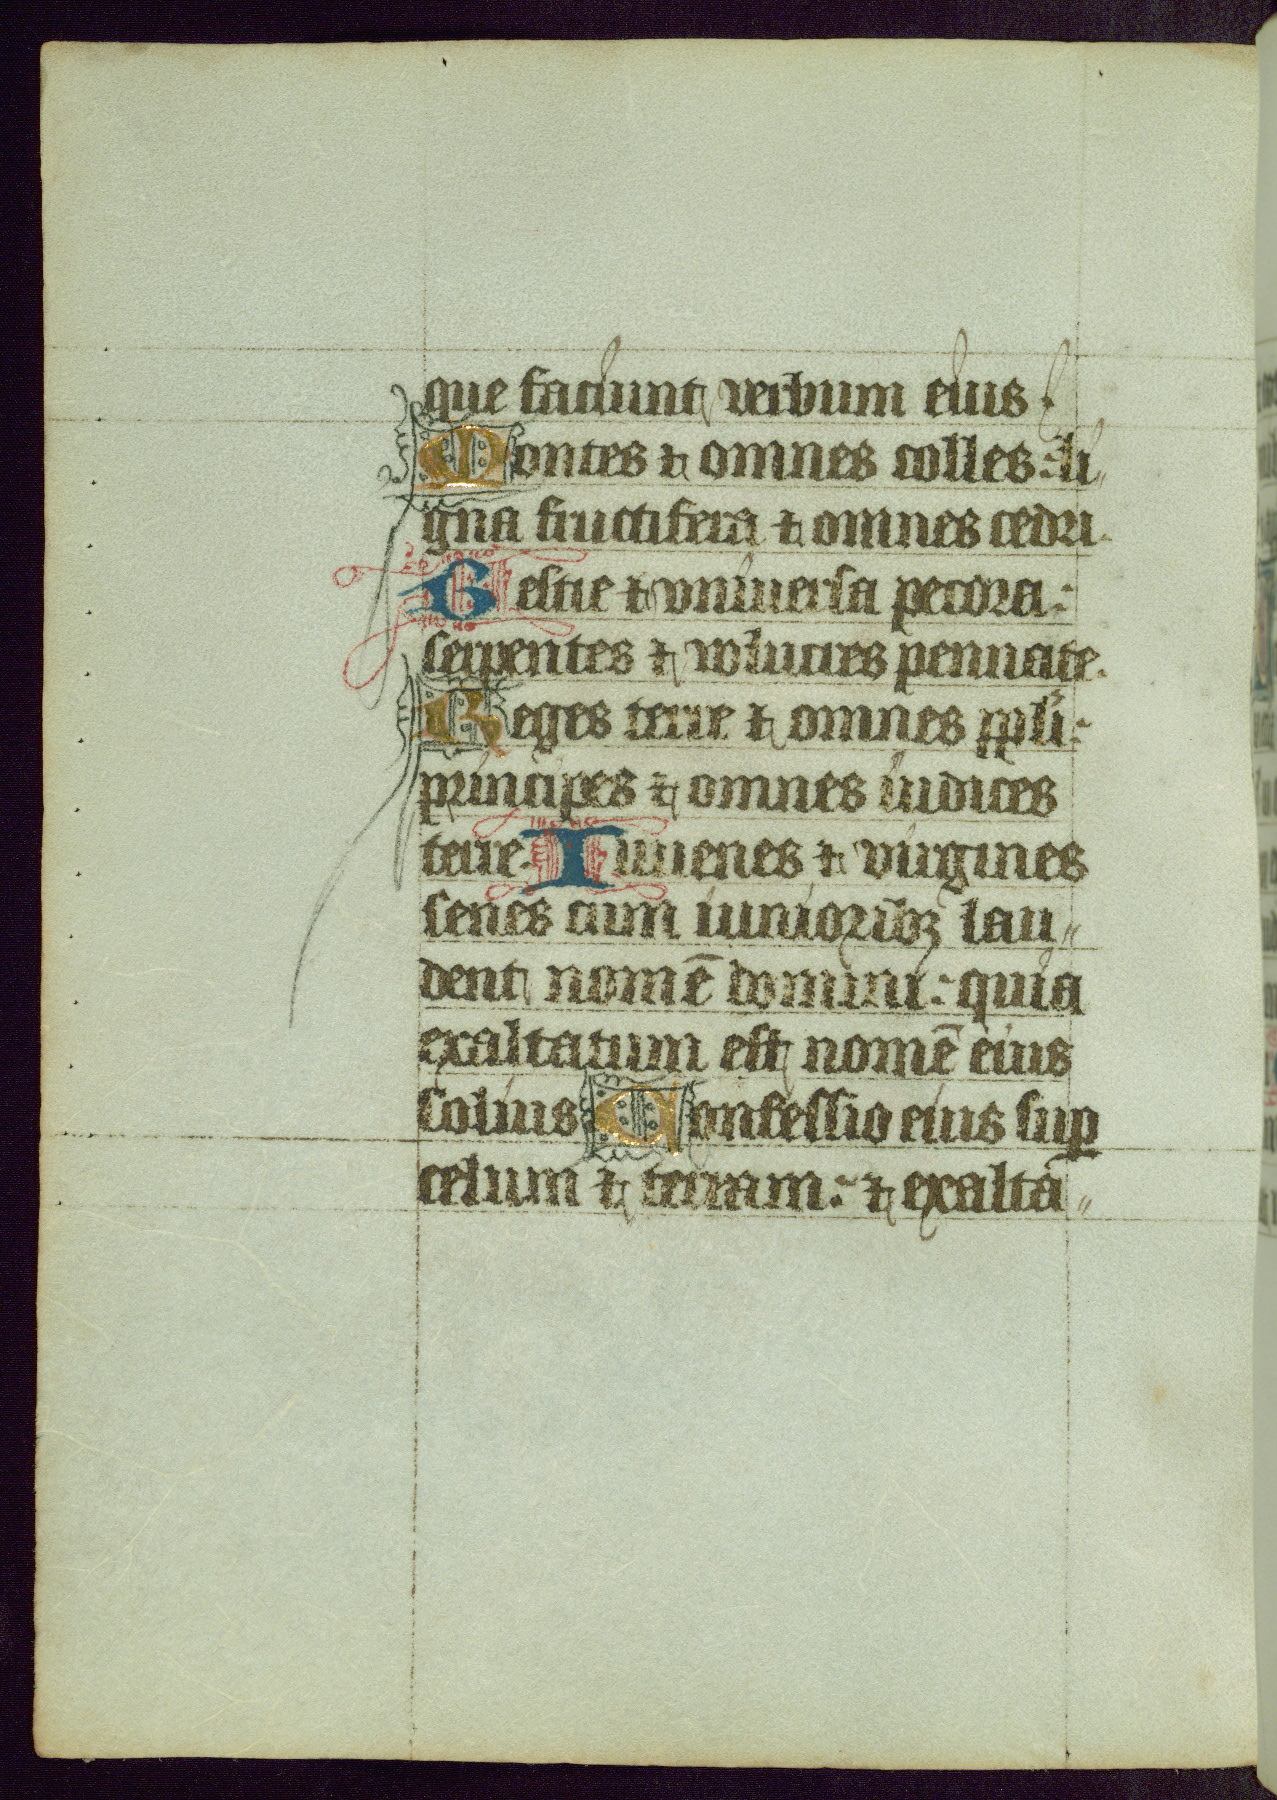 que faciunt verbum eius.
Montes ⁊ omnes colles: li„
gna fructifera ⁊ omnes cedri.
Bestie ⁊ vniuersa pecora:
serpentes ⁊ volucres pennate.
Reges terre ⁊ omnes ppli:
principes ⁊ omnes iudices
terre. Iuuenes ⁊ virgines
senes cum iuniorib₃ lau„
dent nomē domini: quia
exaltatum est nomē eius
solius Confessio eius suꝑ
celum ⁊ terram: ⁊ exalta„